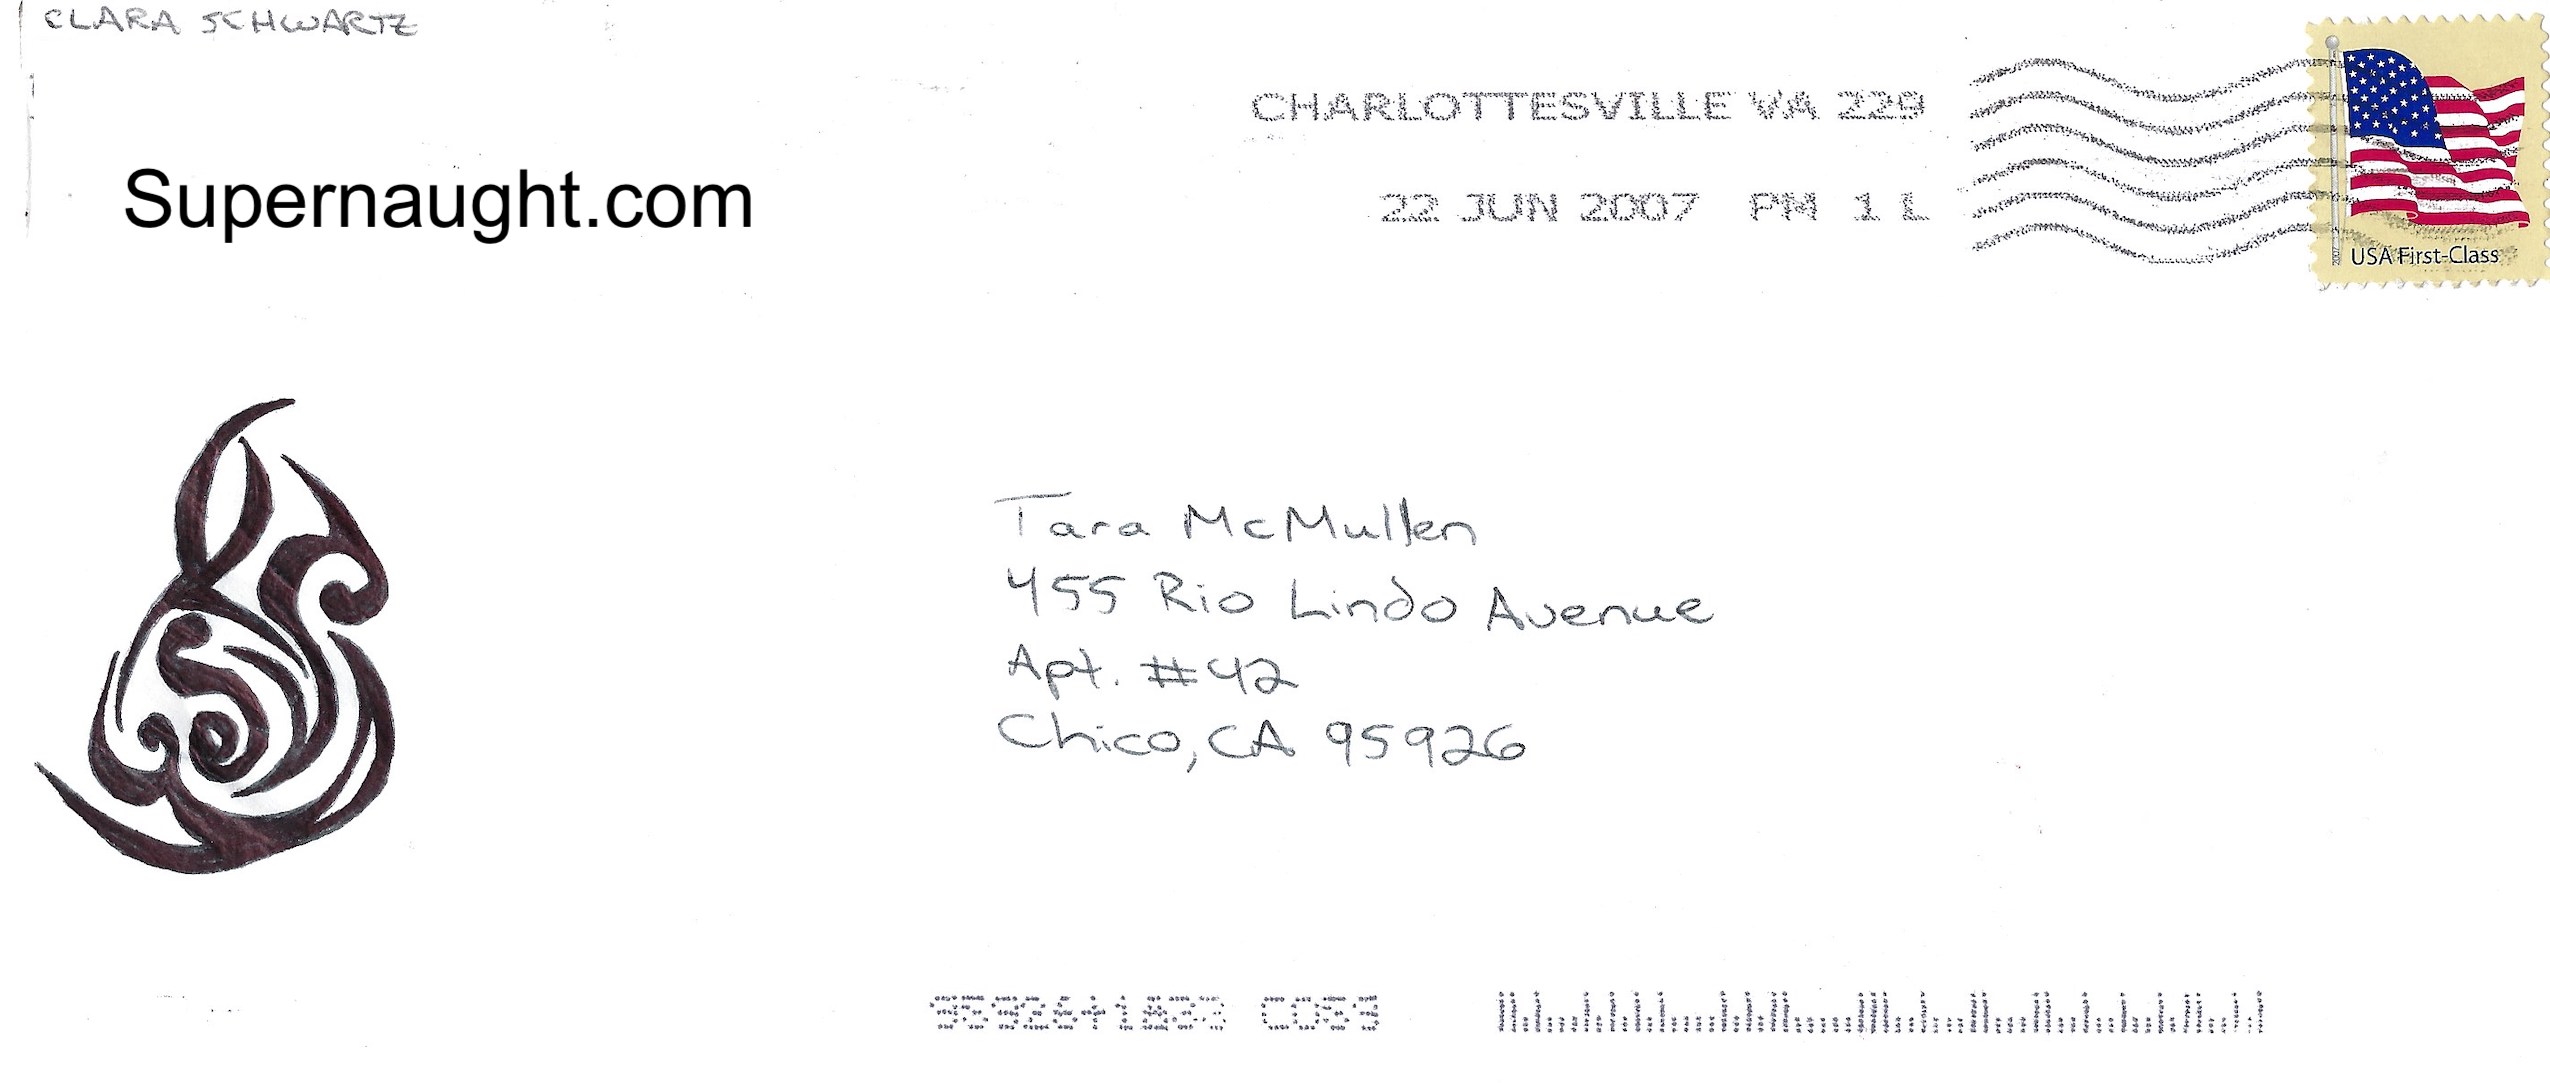 CLARA SCHWARTZ
CHARLOTTESVILLE VA 229
22 JUN 2007 PM 1 L
Supernaught.com
USA First-Class
Tara McMullen
455 Rio Lindo Avenue
Apt. #42
Chico, CA 95926
C053